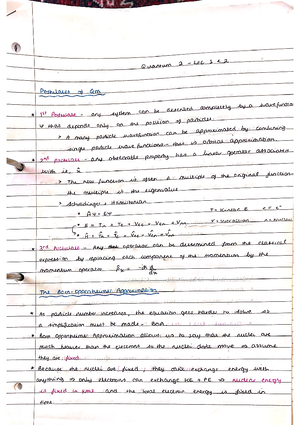 Quantum 2 - Lec 1 & 2
Postulates of QM
• 1st Postulate - any system can be described completely by a wavefunction
Ψ that depends only on the position of particles.
• A many particle wavefunction can be approximated by combining
single particle wave functions - this is orbital approximation.
• 2nd postulate - any observable property has a linear operator associated
with it, 
• The new function is often a multiple of the original function
the multiple is the eigenvalue
• Schrodinger's
• ĤΨ = EΨ
• E = Tn + Te + Vee + Ven + Vnn
• Ĥ =
T = Kinetic E
• 3rd Postulate - Any operator can be determined from the classical
expression by replacing each component of the momentum by the
momentum operator
The Born Oppenheimer Approximation
• As particle number increases, the equation gets harder to solve so
a simplification must be made - Born
• Born Oppenheimer Approximation allows us to say that the nuclei are
much heavier than the electrons so the nuclei don't move so assume
they are fixed
• Because the nuclei are fixed, they can't exchange energy with
anything so only electrons can exchange KE & PE so nuclear energy
is fixed in time and the total electron energy is fixed in
time